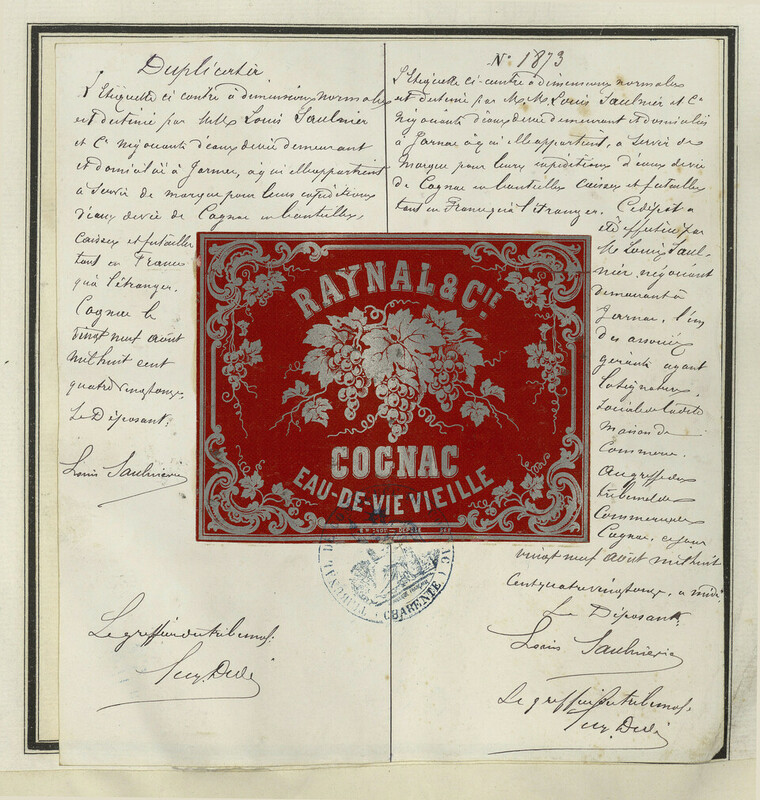 Duplicata
L'étiquette ci contre à dimensions normales
est destinée par MM Louis Saulnier
et Cie négociants d'eaux de vie demeurant
et domiciliés à Jarnac, à qui elle appartient
à servir de marque pour leurs expéditions
d'eaux de vie de Cognac en bouteilles,
caisses et futailles
tant en France
qu'à l'étranger.
Cognac le
vingt neuf août
mil huit cent
quatre vingt onze
Le Déposant:
Louis Saulnier
Le greffier du tribunal:
No 1873
L'étiquette ci-contre à dimensions normales
est destinée par MM Louis Saulnier et Cie
négociants d'eaux de vie demeurant et domiciliés
à Jarnac à qui elle appartient, à servir de
marque pour leurs expéditions d'eaux de vie
de Cognac en bouteilles caisses et futailles
tant en France qu'à l'étranger. Ce dépôt a
été effectué par
M Louis Saul-
nier, négociant
demeurant à
Jarnac, l'un
des associés
gérants ayant
la signature
sociale de la dite
maison de
commerce.
Au greffe du
tribunal de
Commerce de
Cognac, ce jour
vingt neuf août mil huit
cent quatre vingt onze, a midi
Le Déposant:
Louis Saulnier
Le greffier du tribunal:
RAYNAL & CIE
COGNAC
EAU-DE-VIE VIEILLE
TRIBUNAL DE
CHARENTE